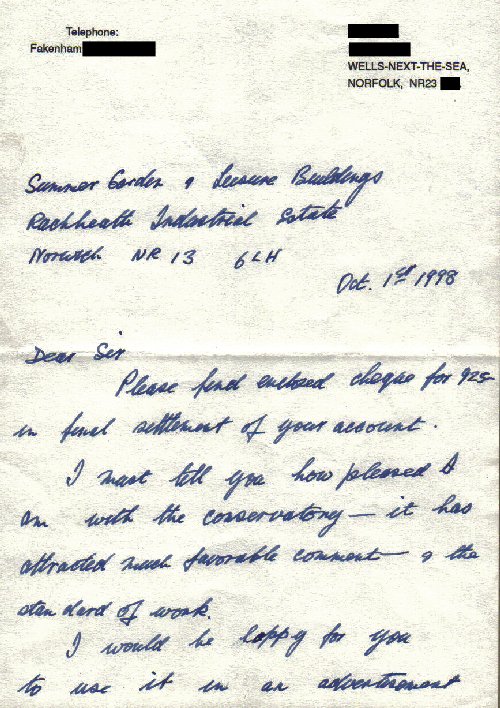 Telephone:
Fakenham
WELLS-NEXT-THE-SEA,
NORFOLK, NR23
Summer Garden & Leisure Buildings
Rackheath Industrial Estate
Norwich NR 13 6LH
Oct. 1st 1998
Dear Sir
Please find enclosed cheque for 925-
in final settlement of your account.
I must tell you how pleased I
am with the conservatory — it has
attracted much favorable comment — & the
standard of work.
I would be happy for you
to use it in an advertisement